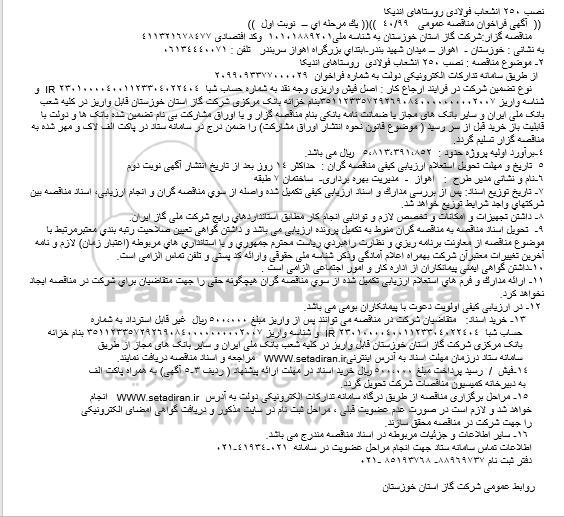 نصب ۲۵۰ انشعاب فولادی روستاهای اندیکا
(( آگهی فراخوان مناقصه عمومی ۴۰/۹۹ ))(( یك مرحله اي – نوبت اول ))
مناقصه گزار:شرکت گاز استان خوزستان به شناسه ملی۱۰۱۰۱۸۸۹۲۰۱ وکد اقتصادی ۴۱۱۳۲۱۶۷۸۴۷۷
به نشانی : خوزستان - اهواز – میدان شهید بندر-ابتداي بزرگراه اهواز سربندر تلفن : ۰۶۱۳۴۴۴۰۰۷۱
۲- موضوع مناقصه : نصب ۲۵۰ انشعاب فولادی روستاهای اندیکا
از طریق سامانه تدارکات الکترونیکی دولت به شماره فراخوان ۲۰۹۹۰۹۳۳۷۷۰۰۰۰۲۹
نوع تضمین شرکت در فرایند ارجاع کار : اصل فیش واریزی وجه نقد به شماره حساب شبا IR ۲۳۰۱۰۰۰۰۴۰۰۱۱۲۳۳۰۴۰۲۲۴۰۴ و
شناسه واریز ۳۵۱۱۲۳۳۵۷۲۹۲۶۹۰۸۴۰۰۰۰۰۰۰۰۰۲۰۰۷بنام خزانه بانک مرکزی شرکت گاز استان خوزستان قابل واریز در کلیه شعب
بانک ملی ایران و سایر بانک های مجاز یا ضمانت نامه بانکی بنام مناقصه گزار و یا اوراق مشارکت بی نام تضمین شده بانک ها و دولت با
قابلیت باز خرید قبل از سر رسید ( موضوع قانون نحوه انتشار اوراق مشارکت) را ضمن درج در سامانه ستاد در پاکت الف لاک و مهر شده به
مناقصه گزار تسلیم گردد.
۴-برآورد اولیه پروژه حدود : ۵،۸۱۳،۳۹۱،۸۵۲ ریال می باشد.
۵- تاریخ و مهلت تحویل استعلام ارزیابی کیفی مناقصه گران : حداکثر ۱۴ روز بعد از تاریخ انتشار آگهی نوبت دوم
۶-نام و نشانی مدیر طرح : اهواز - مدیریت بهره برداري- ساختمان ۷ طبقه
۷- تاریخ توزیع اسناد: پس از بررسی مدارك و اسناد ارزیابی کیفی تکمیل شده واصله از سوي مناقصه گران و انجام ارزیابی، اسناد مناقصه بین
شرکتهاي واجد شرایط توزیع خواهد شد.
۸- داشتن تجهیزات و امکانات و تخصص لازم و توانایی انجام کار مطابق استانداردهاي رایج شرکت ملی گاز ایران.
۹- تحویل اسناد مناقصه به مناقصه گران منوط به تکمیل پرونده ارزیابی می باشد و داشتن گواهی تعیین صلاحیت رتبه بندي معتبرمرتبط با
موضوع مناقصه از معاونت برنامه ریزي و نظارت راهبردي ریاست محترم جمهوري و یا استانداري هاي مربوطه (اعتبار زمان) لازم و نامه
آخرین تغییرات معتبرآن شرکت بهمراه اعلام آمادگی وذکر شناسه ملی حقوقی وارائه کد پستی و تلفن تماس الزامی است.
۱۰-داشتن گواهی ایمنی پیمانکاران از اداره کار و امور اجتماعی الزامی است .
۱۱- ارائه مدارك و فرم هاي استعلام ارزیابی تکمیل شده از سوي مناقصه گران هیچگونه حقی را جهت متقاضیان براي شرکت در مناقصه ایجاد
نخواهد کرد.
۱۲- در ارزیابی کیفی اولویت دعوت با پیمانکاران بومی می باشد.
۱۳- خرید اسناد: متقاضیان شرکت در مناقصه می توانند پس از واریز مبلغ ۵۰۰،۰۰۰ ریال غیر قابل استرداد به شماره
حساب شبا IR ۲۳۰۱۰۰۰۰۴۰۰۱۱۲۳۳۰۴۰۲۲۴۰۴ و شناسه واریز ۳۵۱۱۲۳۳۵۷۲۹۲۶۹۰۸۴۰۰۰۰۰۰۰۰۰۲۰۰۷ بنام خزانه
بانک مرکزی شرکت گاز استان خوزستان قابل واریز در کلیه شعب بانک ملی ایران و سایر بانک های مجاز از طریق
سامانه ستاد درزمان مهلت اسناد به آدرس اینترنتیWWW.setadiran.ir مراجعه و اسناد مناقصه دریافت نمایند.
۱۴-فیش / رسید پرداخت مبلغ ۵۰۰،۰۰۰ ریال خرید اسناد در مهلت ارائه پیشنهاد ( ردیف ۳-۵ آگهی) به همراه پاکت الف
به دبیرخانه کمیسیون مناقصات شرکت تحویل گردد.
۱۵- مراحل برگزاری مناقصه از طریق درگاه سامانه تدارکات الکترونیکی دولت به آدرس WWW.setadiran.ir انجام
خواهد شد و لازم است در صورت عدم عضویت قبلی ، مراحل ثبت نام در سایت مذکور و دریافت گواهی امضای الکترونیکی
را جهت شرکت در مناقصه محقق سازند.
۱۶- سایر اطلاعات و جزئیات مربوطه در اسناد مناقصه مندرج می باشد.
اطلاعات تماس سامانه ستاد جهت انجام مراحل عضویت در سامانه ۰۲۱-۴۱۹۳۴-۰۲۱
دفتر ثبت نام ۸۸۹۶۹۷۳۷-۸۵۱۹۳۷۶۸ -۰۲۱
روابط عمومی شرکت گاز استان خوزستان